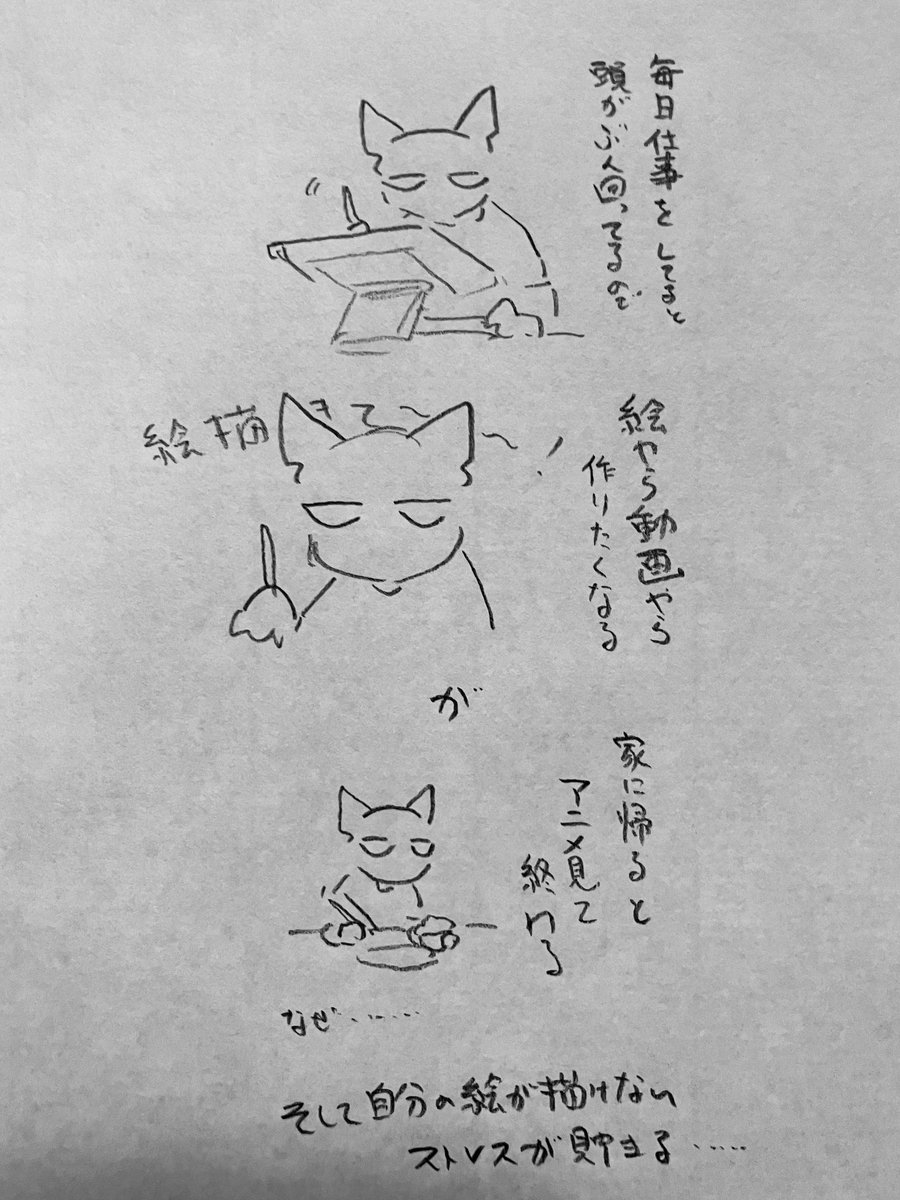 毎日仕事をしてると
頭がぶん回ってるので
絵やら動画やら
作りたくなる
絵描きて〜〜!
が
家に帰ると
アニメ見て
終わる
なぜ……
そして自分の絵が描けない
ストレスが貯まる……